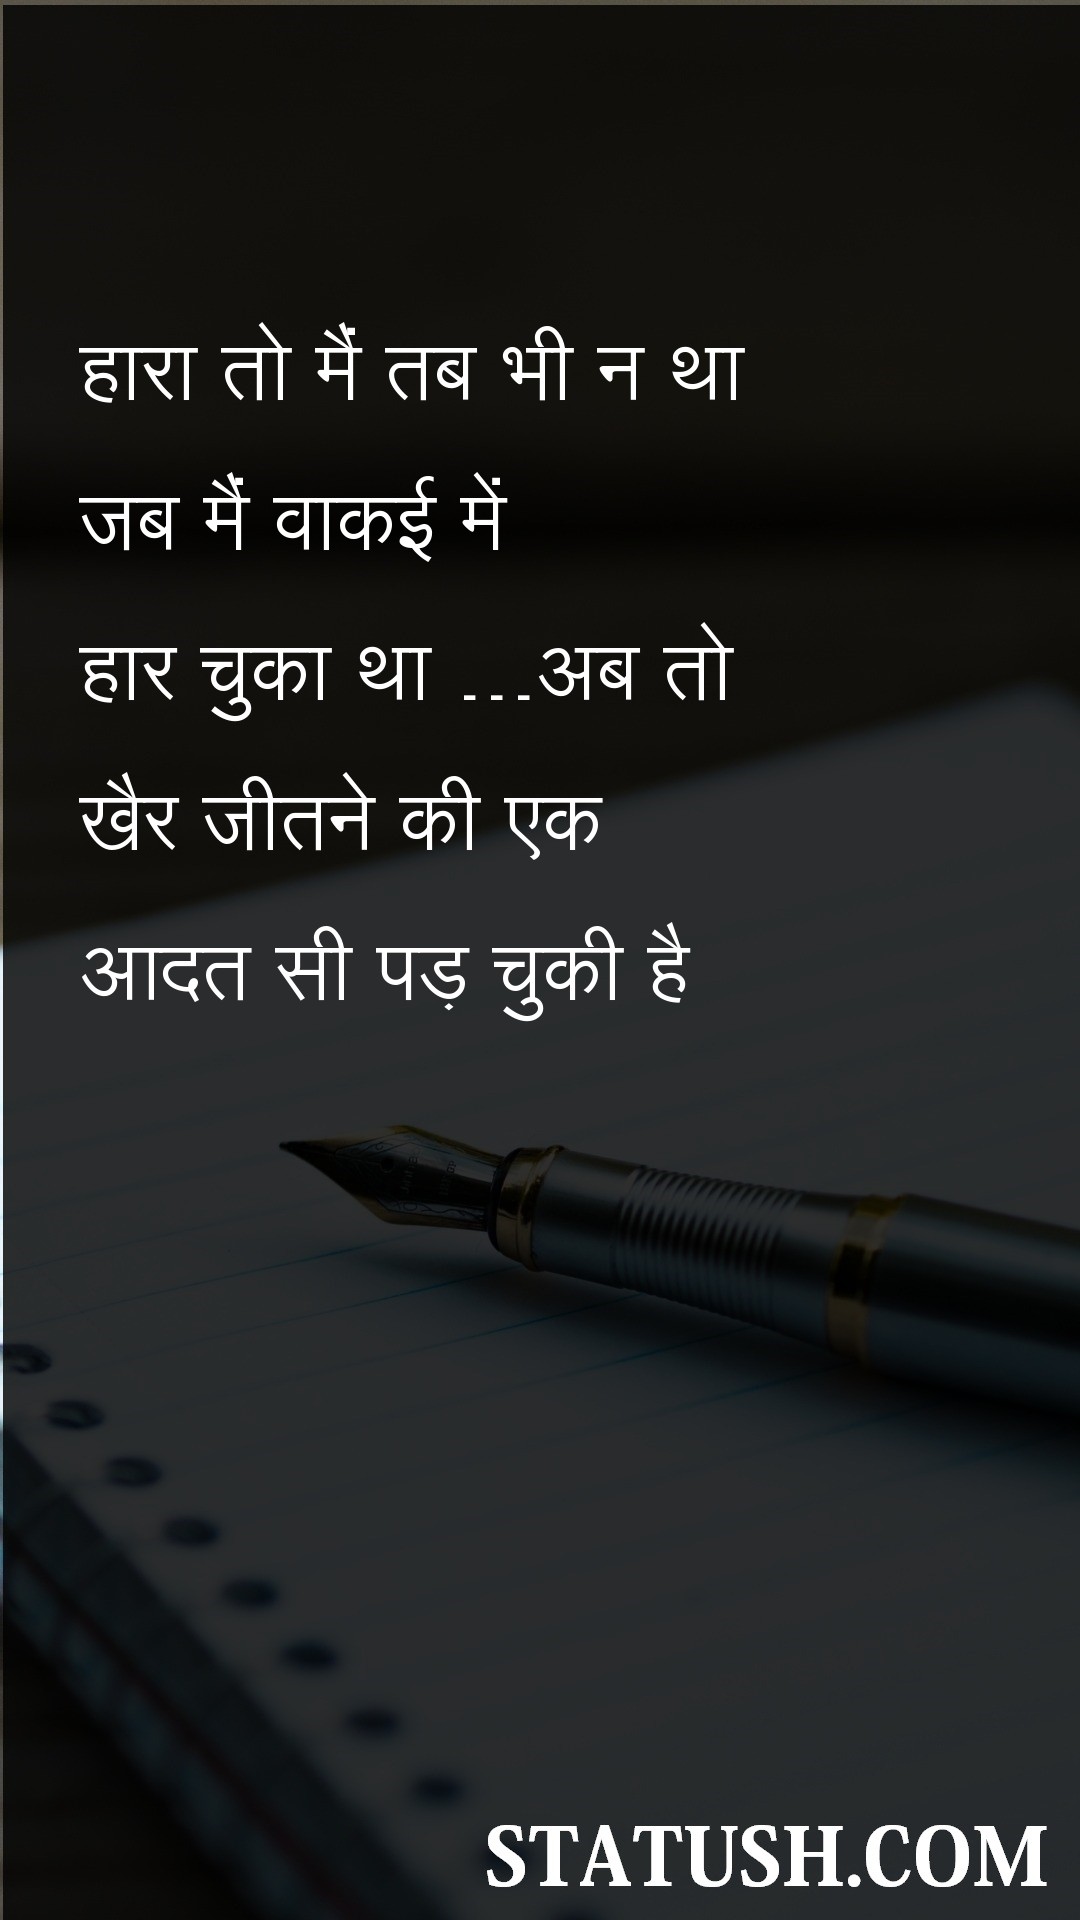 हारा तो मैं तब भी न था
जब मैं वाकई में
हार चुका था ...अब तो
खैर जीतने की एक
आदत सी पड़ चुकी है
STATUSH.COM